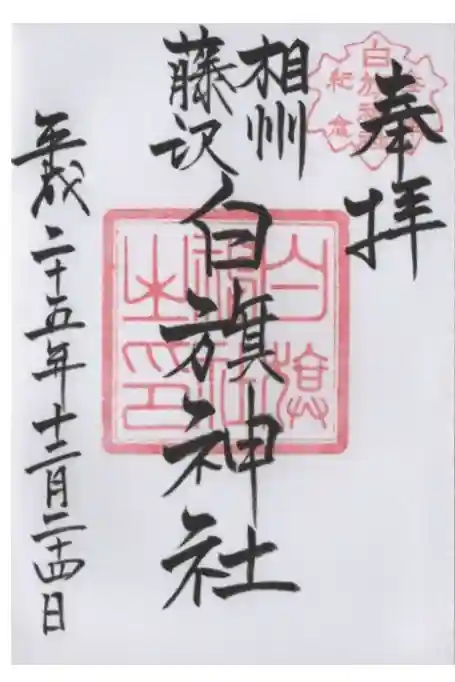 奉拝
相州
藤沢
白旗神社
平成二十五年十二月二十四日
白旗
神社
之印